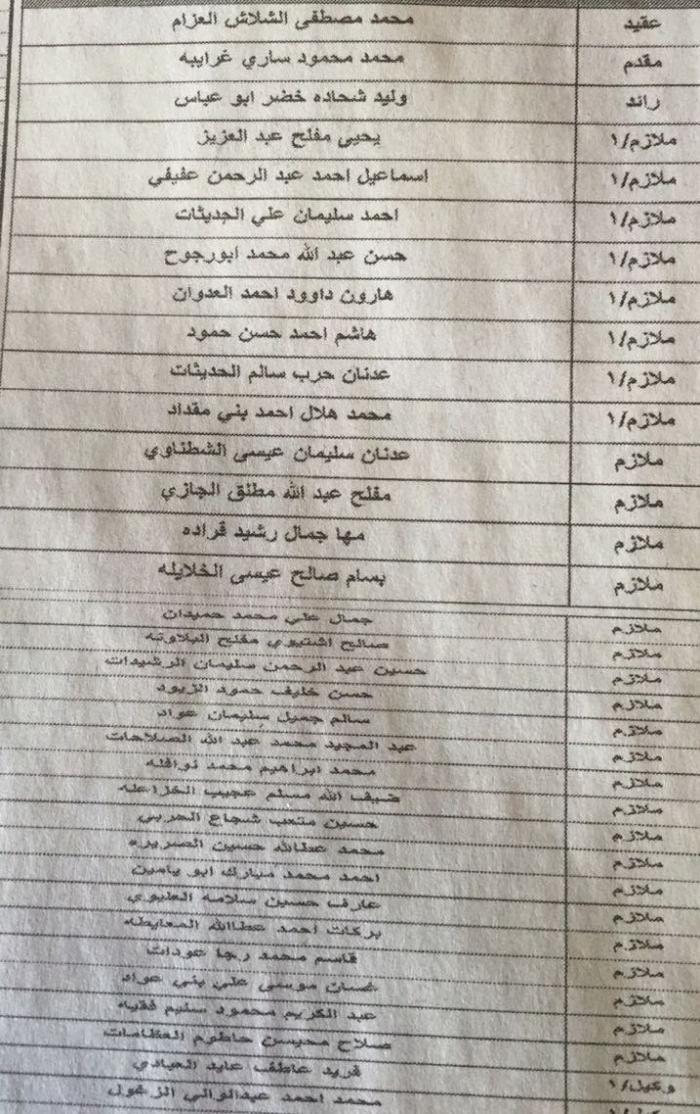 عقيد محمد مصطفى الشلاش العزام
مقدم محمد محمود ساري غرايبه
رائد وليد شحاده خضر ابو عباس
ملازم/١ يحيى مفلح عبد العزيز
ملازم/١ اسماعيل احمد عبد الرحمن عفيفي
ملازم/١ احمد سليمان علي الحديثات
ملازم/١ حسن عبد الله محمد ابورجوح
ملازم/١ هارون داوود احمد العدوان
ملازم/١ هاشم احمد حسن حمود
ملازم/١ عدنان حرب سالم الحديثات
ملازم/١ محمد هلال احمد بني مقداد
ملازم عدنان سليمان عيسى الشطناوي
ملازم مفلح عبد الله مطلق الجازي
ملازم مها جمال رشيد قراده
ملازم بسام صالح عيسى الخلايله
ملازم جمال علي محمد حميدان
ملازم صالح اشتيوي مفلح البلاونه
ملازم حسين عبد الرحمن سليمان الرشيدات
ملازم حسن خليف حمود الزيود
ملازم سالم جميل سليمان عواد
ملازم عبد المجيد محمد عبد الله الصلاحات
ملازم محمد ابراهيم محمد نوافله
ملازم ضيف الله مسلم عجيب الخزاعله
ملازم حسين متعب شجاع الحربي
ملازم محمد عطالله حسين الصريره
ملازم احمد محمد مبارك ابو يامين
ملازم عارف حسين سلامه
ملازم بركات احمد عطاالله المعايطه
ملازم قاسم محمد رجا عودات
ملازم غسان موسى علي بني عواد
ملازم عبد الكريم محمود سليم فقيه
ملازم صلاح محيسن حاطوم العظامات
وكيل/١ فريد عاطف عايد العبادي
محمد احمد عبدالوالي الزغول